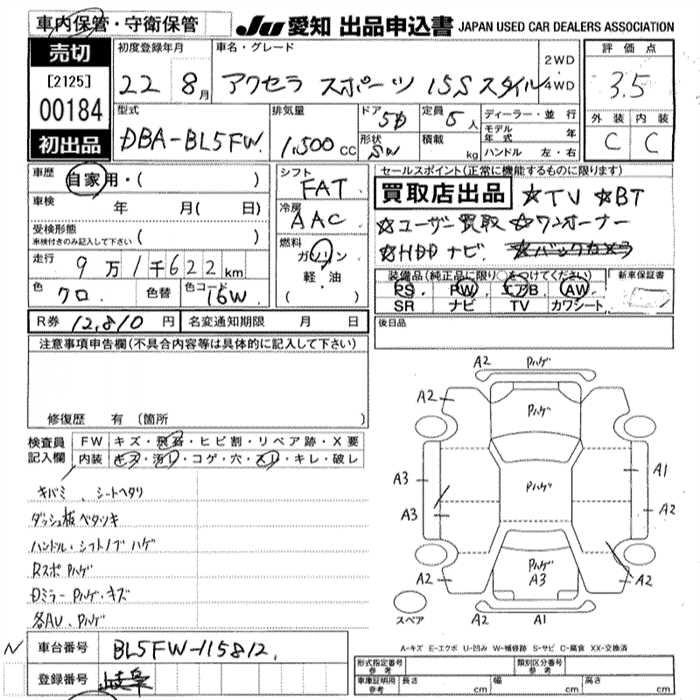 車内保管・守衛保管
JU 愛知 出品申込書 JAPAN USED CAR DEALERS ASSOCIATION
売切
[2125]
00184
初出品
初度登録年月
22年 8月
車名・グレード
アクセラ スポーツ 15S スタイル
2WD
4WD
評価点
3.5
外装 内装
C C
型式
DBA-BL5FW
排気量
1.500 cc
ドア 5D
形状 SW
定員 5人
積載 kg
ディーラー・並行
モデル年式 年
ハンドル 左・右
車歴 自家用・( )
車検 年 月( 日)
受検形態
車検付きのみ記入して下さい ( )
走行
9万1千622km
色 クロ 色替 色コード 16W
シフト
FAT
冷房
AAC
燃料
ガソリン
軽・油
( )
セールスポイント(正常に機能するものに限ります)
買取店出品 ☆TV ☆BT
☆ユーザー買取 ☆ワンオーナー
☆HDDナビ ☆バックカメラ
装備品(純正品に限り○をつけてください)
PS PW エアB AW
SR ナビ TV カワシート
新車保証書
後日品
R券 12,810円 名変通知期限 月 日
注意事項申告欄(不具合内容等は具体的に記入して下さい)
修復歴 有 (箇所 )
検査員記入欄
FW キズ・飛石・ヒビ割・リペア跡・X要
内装 キズ・汚れ・コゲ・穴・スレ・キレ・破レ
キバミ、シートヘタリ
ダッシュ板ベタツキ
ハンドル・シフトノブハゲ
Rスポ Pハゲ
Dミラー Pハゲ・キズ
各AU、Pハゲ
A2 Pハゲ
A2 Pハゲ
A3 Pハゲ A1
A3 A2
Pハゲ
A2 A3 A2
A2 A1
スペア
A-キズ E-エクボ U-凹み W-補修跡 S-サビ C-腐食 XX-交換済
N
車台番号 BL5FW-115812
登録番号 岐阜
形式指定番号 参考
類別区分番号 参考
車庫証明用 参考 長さ cm 幅 cm 高さ cm